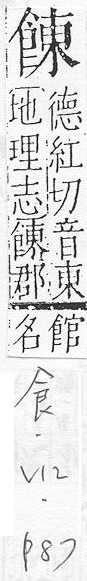 餗
德紅切音東
地理志餗郡
館
名
食.
V12
.
p87